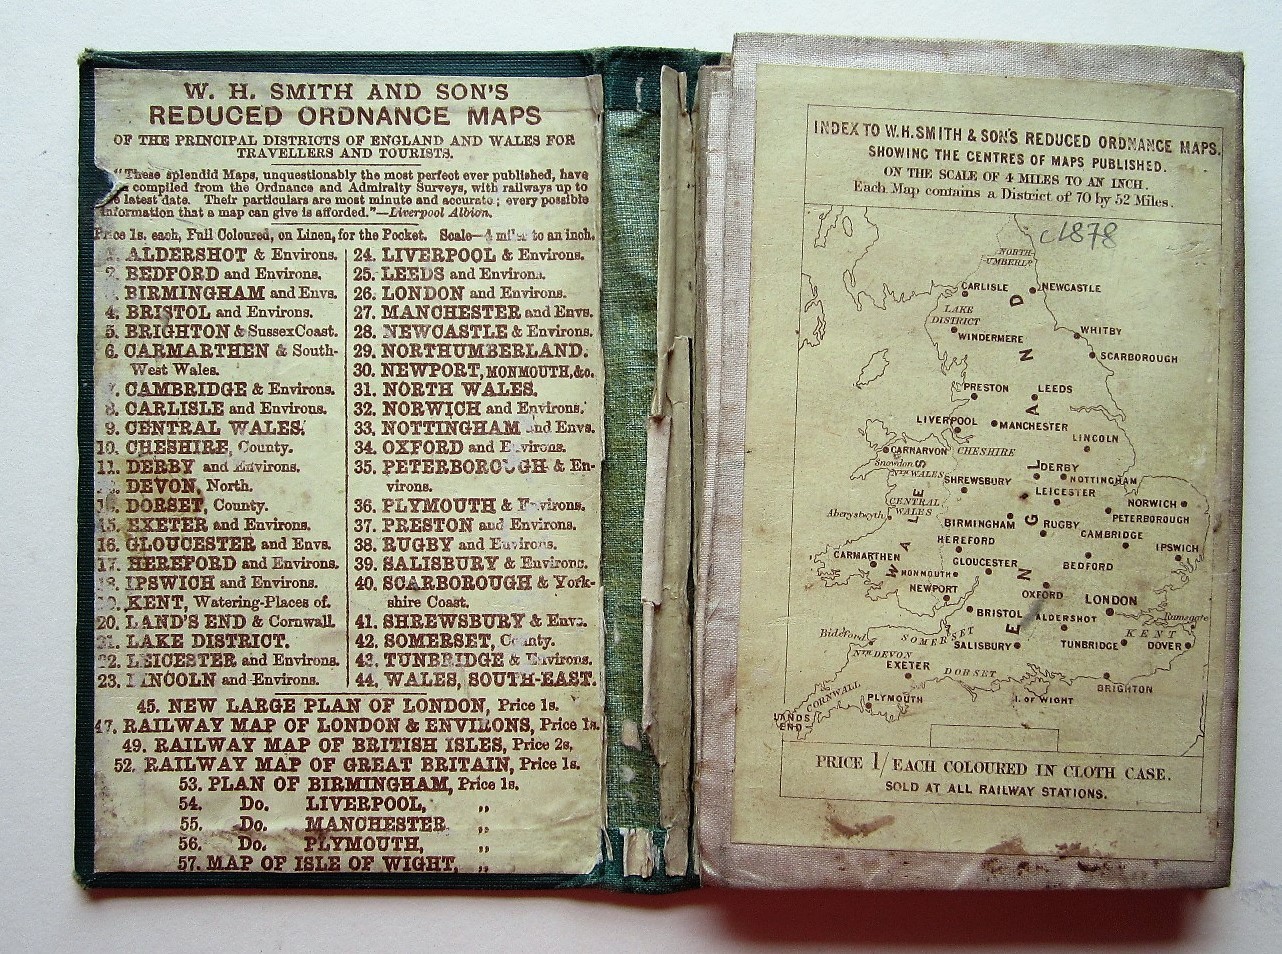 W. H. SMITH AND SON'S
REDUCED ORDNANCE MAPS
OF THE PRINCIPAL DISTRICTS OF ENGLAND AND WALES FOR
TRAVELLERS AND TOURISTS.
"These splendid Maps, unquestionably the most perfect ever published, have
compiled from the Ordnance and Admiralty Surveys, with railways up to
latest date. Their particulars are most minute and accurate; every possible
information that a map can give is afforded."—Liverpool Albion.
Price 1s. each, Full Coloured, on Linen, for the Pocket. Scale—4 miles to an inch.
ALDERSHOT & Environs.
2. BEDFORD and Environs.
BIRMINGHAM and Envs.
4. BRISTOL and Environs.
5. BRIGHTON & Sussex Coast.
6. CARMARTHEN & South-
West Wales.
7. CAMBRIDGE & Environs.
8. CARLISLE and Environs.
9. CENTRAL WALES.
10. CHESHIRE, County.
11. DERBY and Environs.
DEVON, North.
DORSET, County.
15. EXETER and Environs.
16. GLOUCESTER and Envs.
17. HEREFORD and Environs.
IPSWICH and Environs.
KENT, Watering-Places of.
20. LAND'S END & Cornwall.
21. LAKE DISTRICT.
22. LEICESTER and Environs.
23. LINCOLN and Environs.
24. LIVERPOOL & Environs.
25. LEEDS and Environs.
26. LONDON and Environs.
27. MANCHESTER and Envs.
28. NEWCASTLE & Environs.
29. NORTHUMBERLAND.
30. NEWPORT, MONMOUTH, &c.
31. NORTH WALES.
32. NORWICH and Environs.
33. NOTTINGHAM and Envs.
34. OXFORD and Environs.
35. PETERBOROUGH & En-
virons.
36. PLYMOUTH & Environs.
37. PRESTON and Environs.
38. RUGBY and Environs.
39. SALISBURY & Environs.
40. SCARBOROUGH & York-
shire Coast.
41. SHREWSBURY & Envs.
42. SOMERSET, County.
43. TUNBRIDGE & Environs.
44. WALES, SOUTH-EAST.
45. NEW LARGE PLAN OF LONDON, Price 1s.
47. RAILWAY MAP OF LONDON & ENVIRONS, Price 1s.
49. RAILWAY MAP OF BRITISH ISLES, Price 2s.
52. RAILWAY MAP OF GREAT BRITAIN, Price 1s.
53. PLAN OF BIRMINGHAM, Price 1s.
54. Do. LIVERPOOL, „
55. Do. MANCHESTER „
56. Do. PLYMOUTH, „
57. MAP OF ISLE OF WIGHT, „
INDEX TO W. H. SMITH & SON'S REDUCED ORDNANCE MAPS.
SHOWING THE CENTRES OF MAPS PUBLISHED.
ON THE SCALE OF 4 MILES TO AN INCH.
Each Map contains a District of 70 by 52 Miles.
c1878
NORTH
UMBERLD
CARLISLE
NEWCASTLE
LAKE
DISTRICT
WINDERMERE
WHITBY
SCARBOROUGH
PRESTON
LEEDS
LIVERPOOL
MANCHESTER
LINCOLN
CARNARVON
CHESHIRE
Snowdon
NTH WALES
DERBY
NOTTINGHAM
SHREWSBURY
LEICESTER
NORWICH
CENTRAL
WALES
Aberystwyth
PETERBOROUGH
BIRMINGHAM
RUGBY
CAMBRIDGE
HEREFORD
IPSWICH
CARMARTHEN
GLOUCESTER
BEDFORD
MONMOUTH
NEWPORT
OXFORD
LONDON
BRISTOL
ALDERSHOT
Ramsgate
KENT
Bideford
SOMERSET
SALISBURY
TUNBRIDGE
DOVER
NTH DEVON
EXETER
DORSET
BRIGHTON
CORNWALL
PLYMOUTH
I. OF WIGHT
LANDS
END
ENGLAND
WALES
PRICE 1/ EACH COLOURED IN CLOTH CASE.
SOLD AT ALL RAILWAY STATIONS.